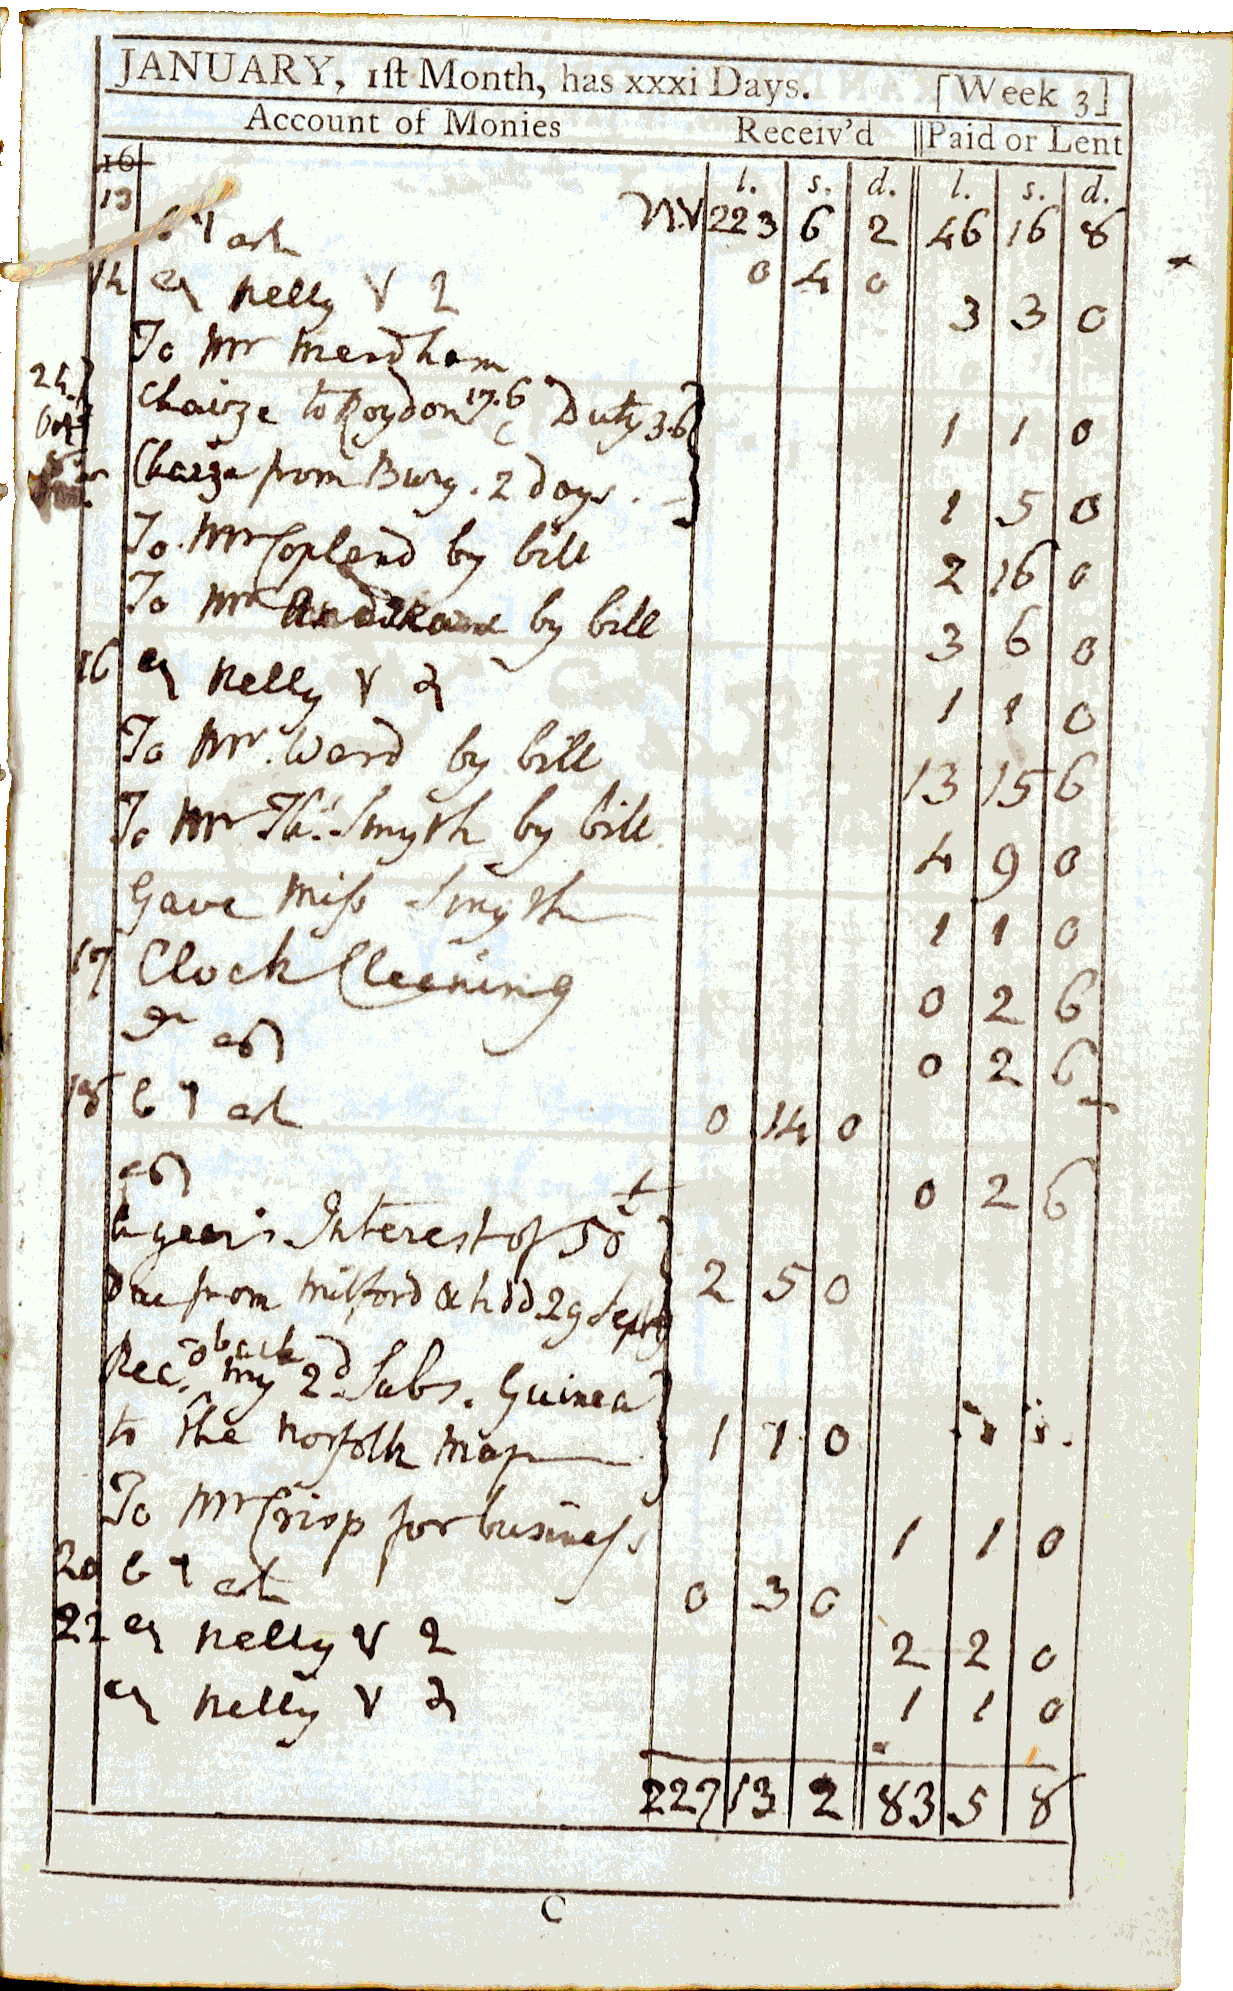 JANUARY, 1ſt Month, has xxxi Days. [Week 3]
Account of Monies Receiv'd Paid or Lent
16
l. s. d. l. s. d.
13 223 6 2 46 16 8
0 4 0
14 Nelly V 2 3 3 0
To Mr Mendham
Chaize to Roydon 17.6 Duty 3.6 1 1 0
Chaize from Bury. 2 days. 1 5 0
To Mr Copland by bill 2 16 0
To Mr by bill 3 6 0
16 Nelly V 2 1 1 0
To Mr. Ward by bill 13 15 6
To Mr Ths. Smyth by bill 4 9 0
Gave Miſs Smyth 1 1 0
17 Clock Cleaning 0 2 6
0 2 6
18 0 14 0
0 2 6
A year's Interest of 50
due from Milford 29 Sept 2 5 0
Recd. back my 2d Subs. Guinea
to the Norfolk Map 1 1 0
To Mr Crisp for busineſs 1 1 0
20 0 3 0
22 Nelly V 2 2 2 0
Nelly V 2 1 1 0
227 13 2 83 5 8
C